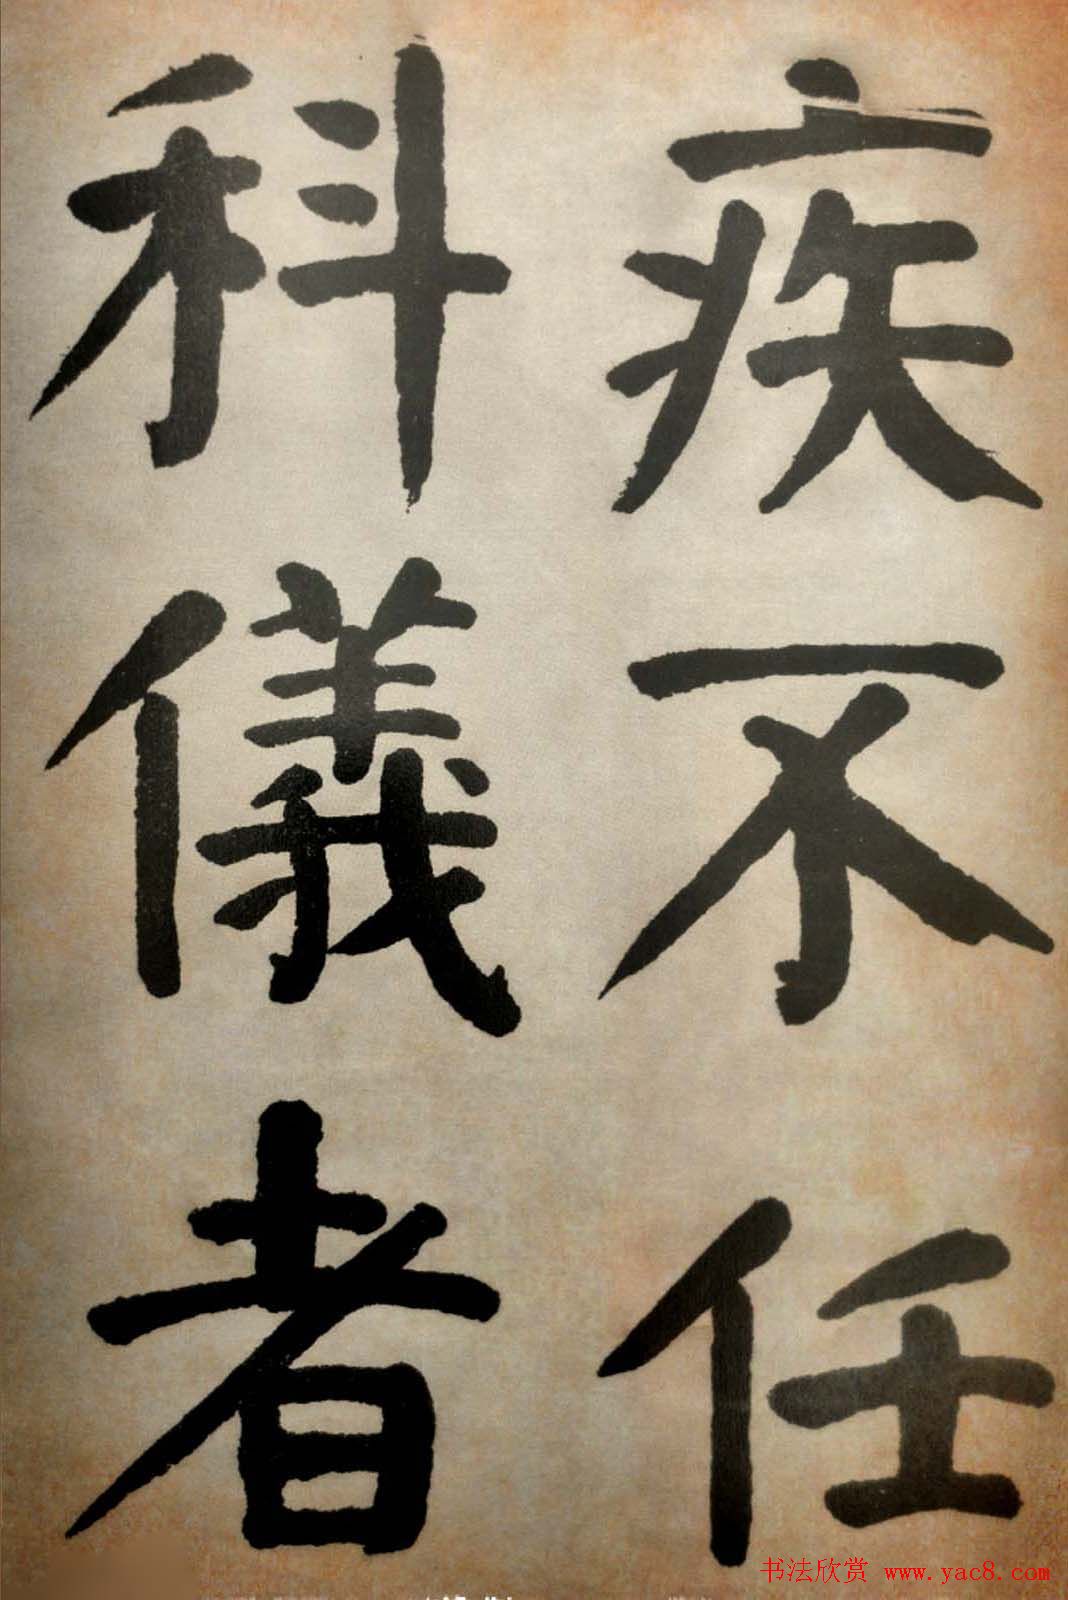 疾不任
科儀者
书法欣赏 www.yac8.com